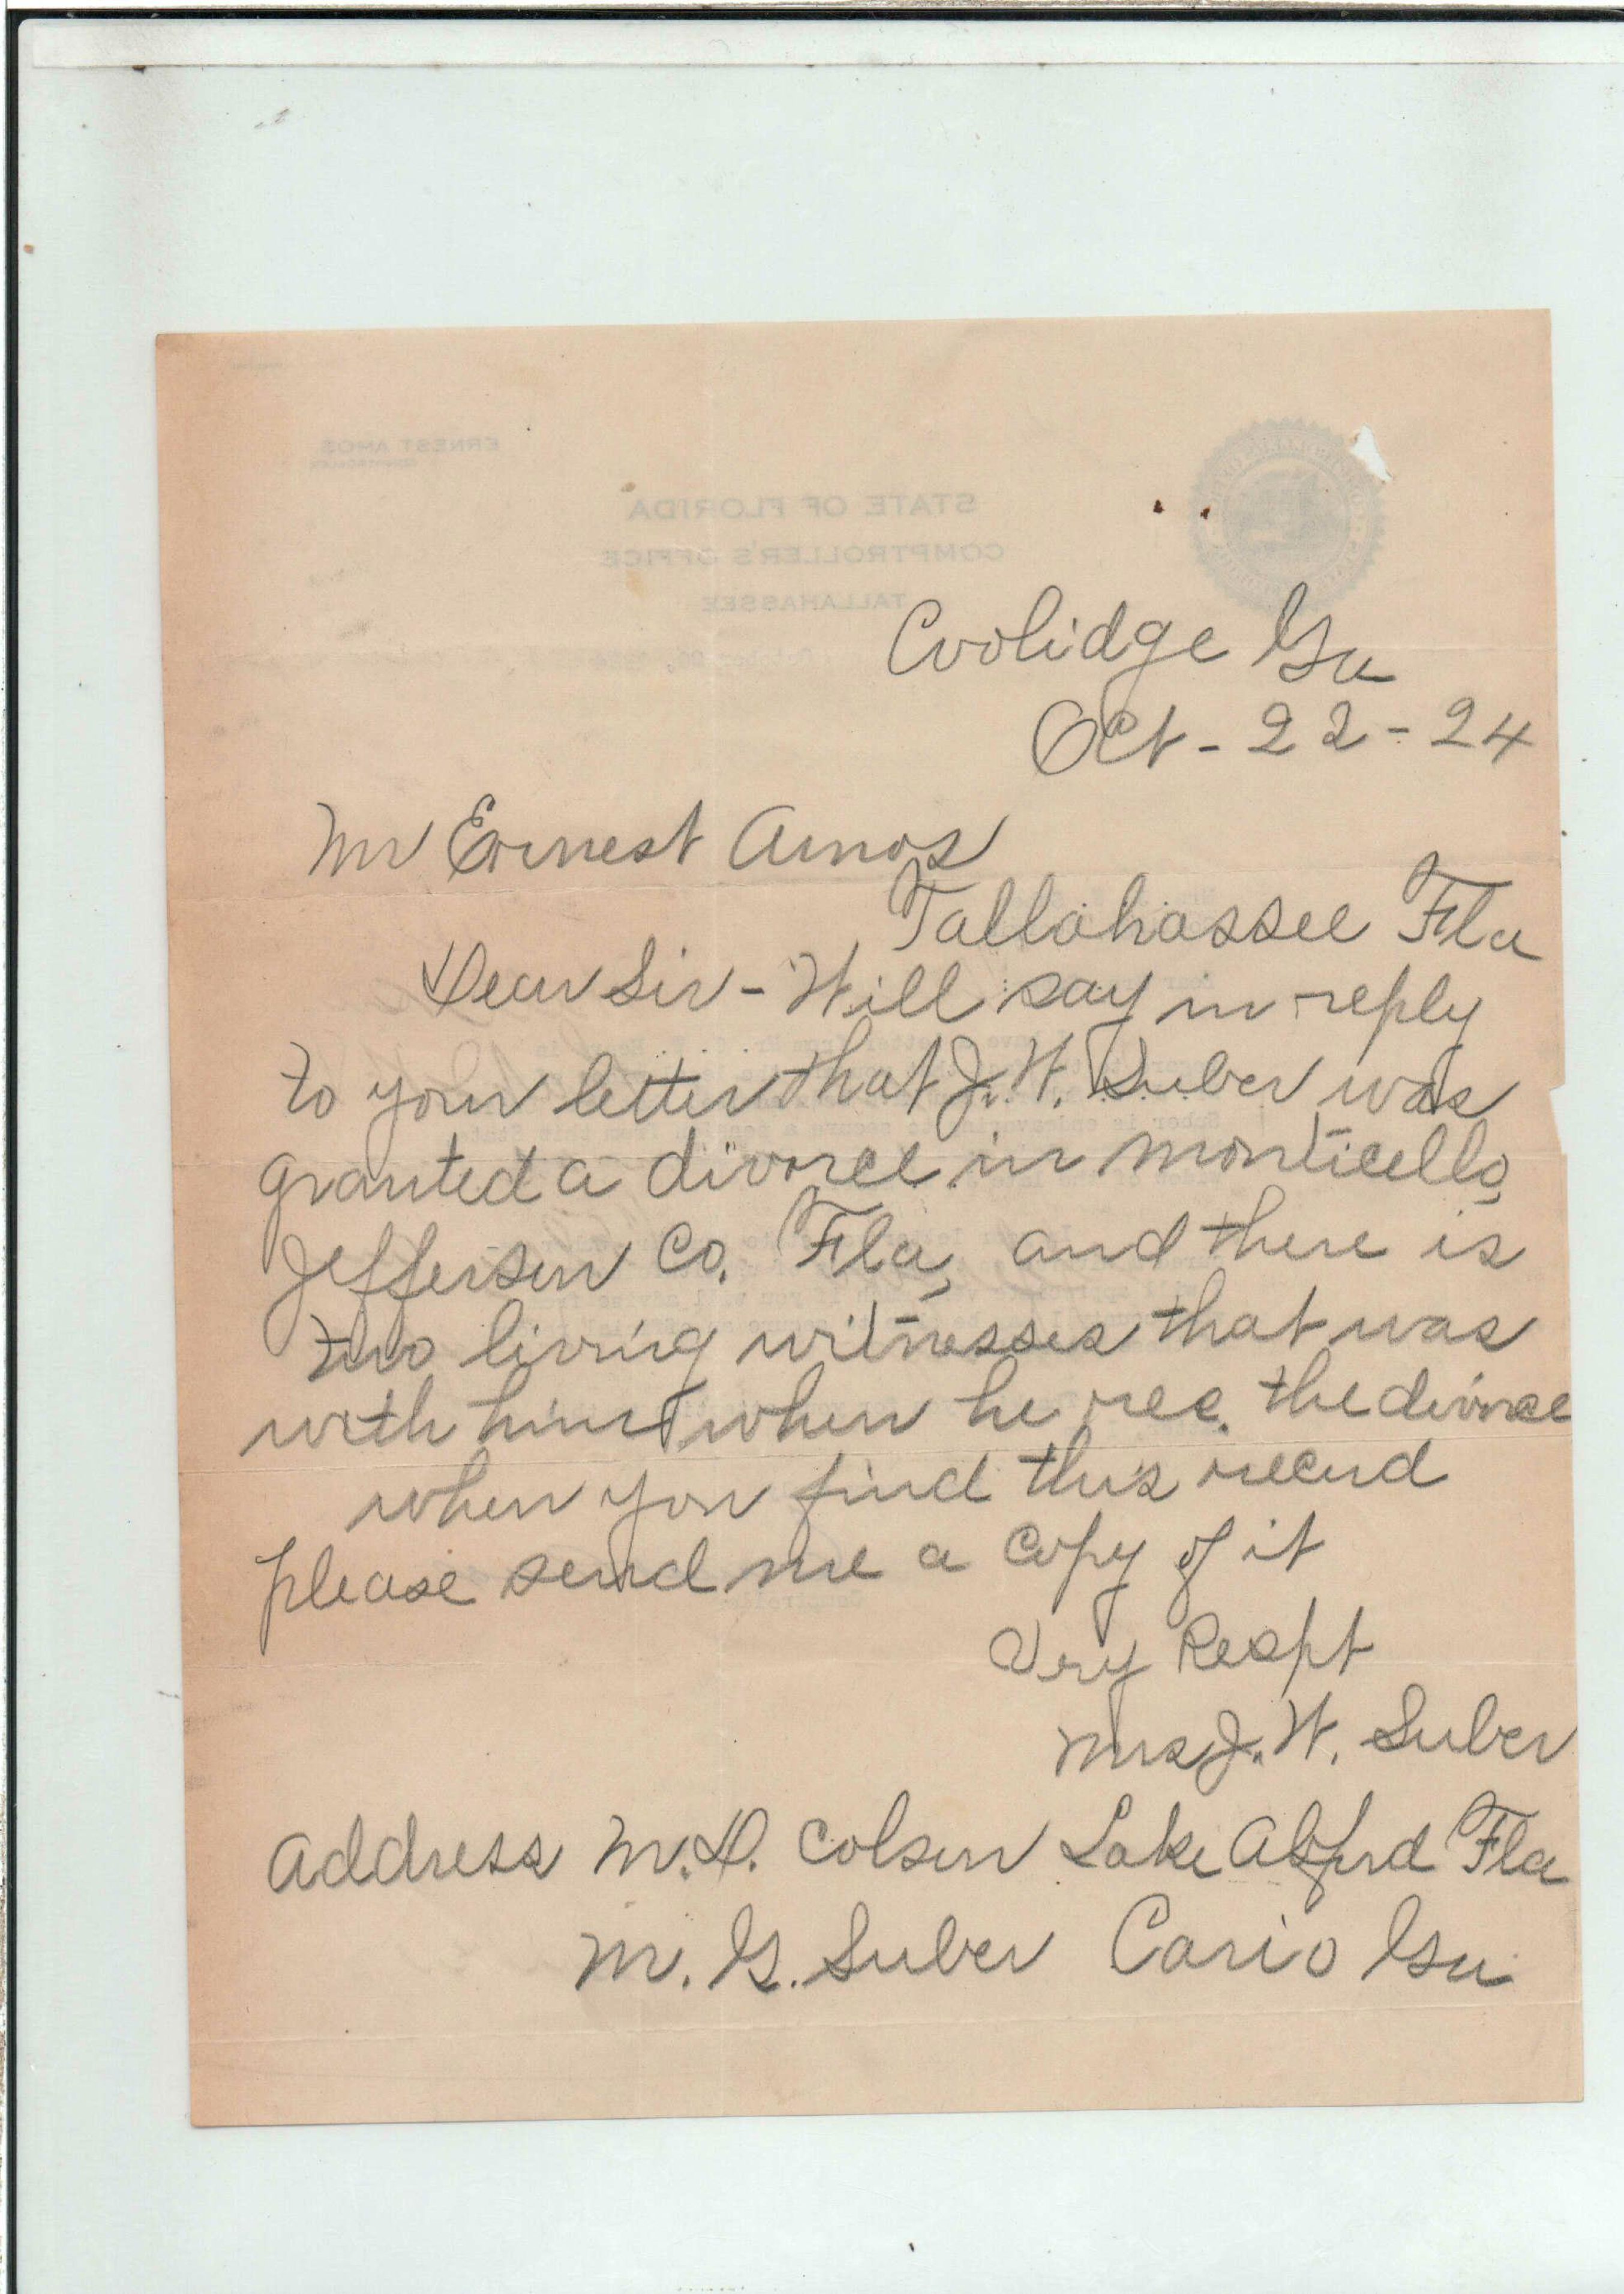 Coolidge Ga
Oct - 22 - 24
Mr Ernest Amos
Tallahassee Fla
Dear Sir - Will say in reply
to your letter that J. W. Suber was
granted a divorce in Monticello,
Jefferson Co. Fla, and there is
two living witnesses that was
with him when he rec. the divorce
when you find this record
please send me a copy of it
Very Respt
Mrs J. W. Suber
Address M. D. Colson Lake Alford Fla
M. G. Suber Cario Ga
ERNEST AMOS
COMPTROLLER
STATE OF FLORIDA
COMPTROLLER'S OFFICE
TALLAHASSEE